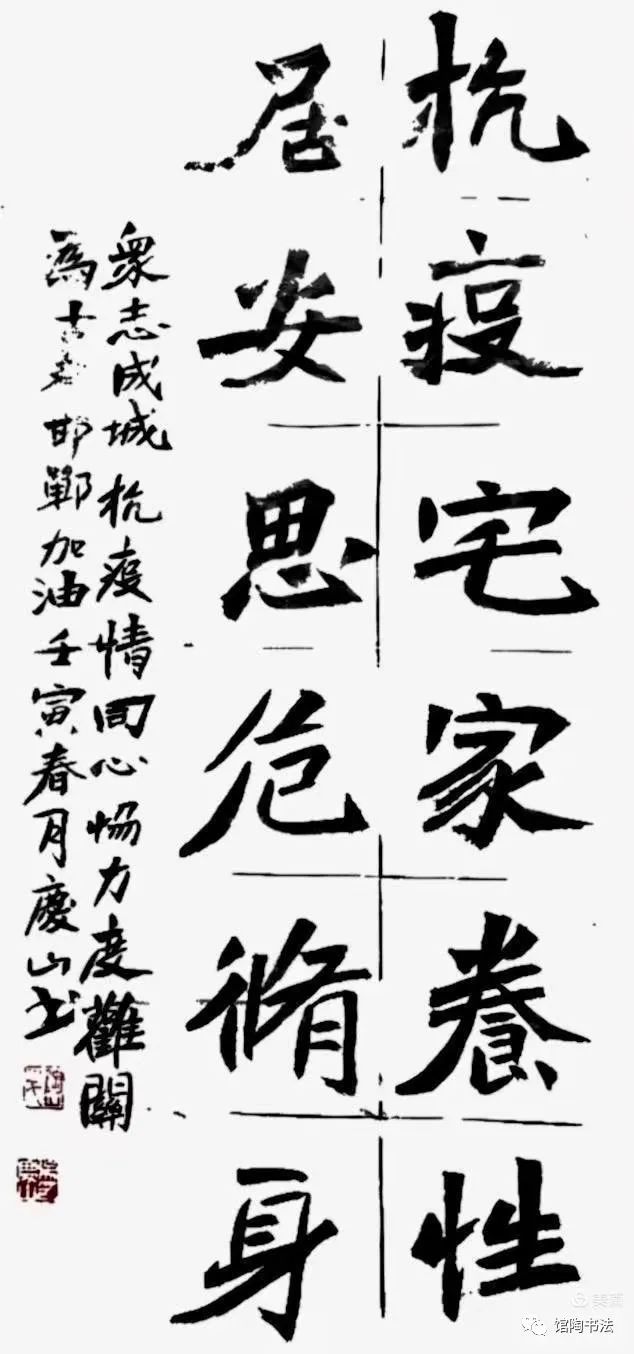 抗疫宅家養性
居安思危脩身
衆志成城抗疫情同心恊力度難關
為邯鄲加油壬寅春月慶山书
美篇
馆陶书法